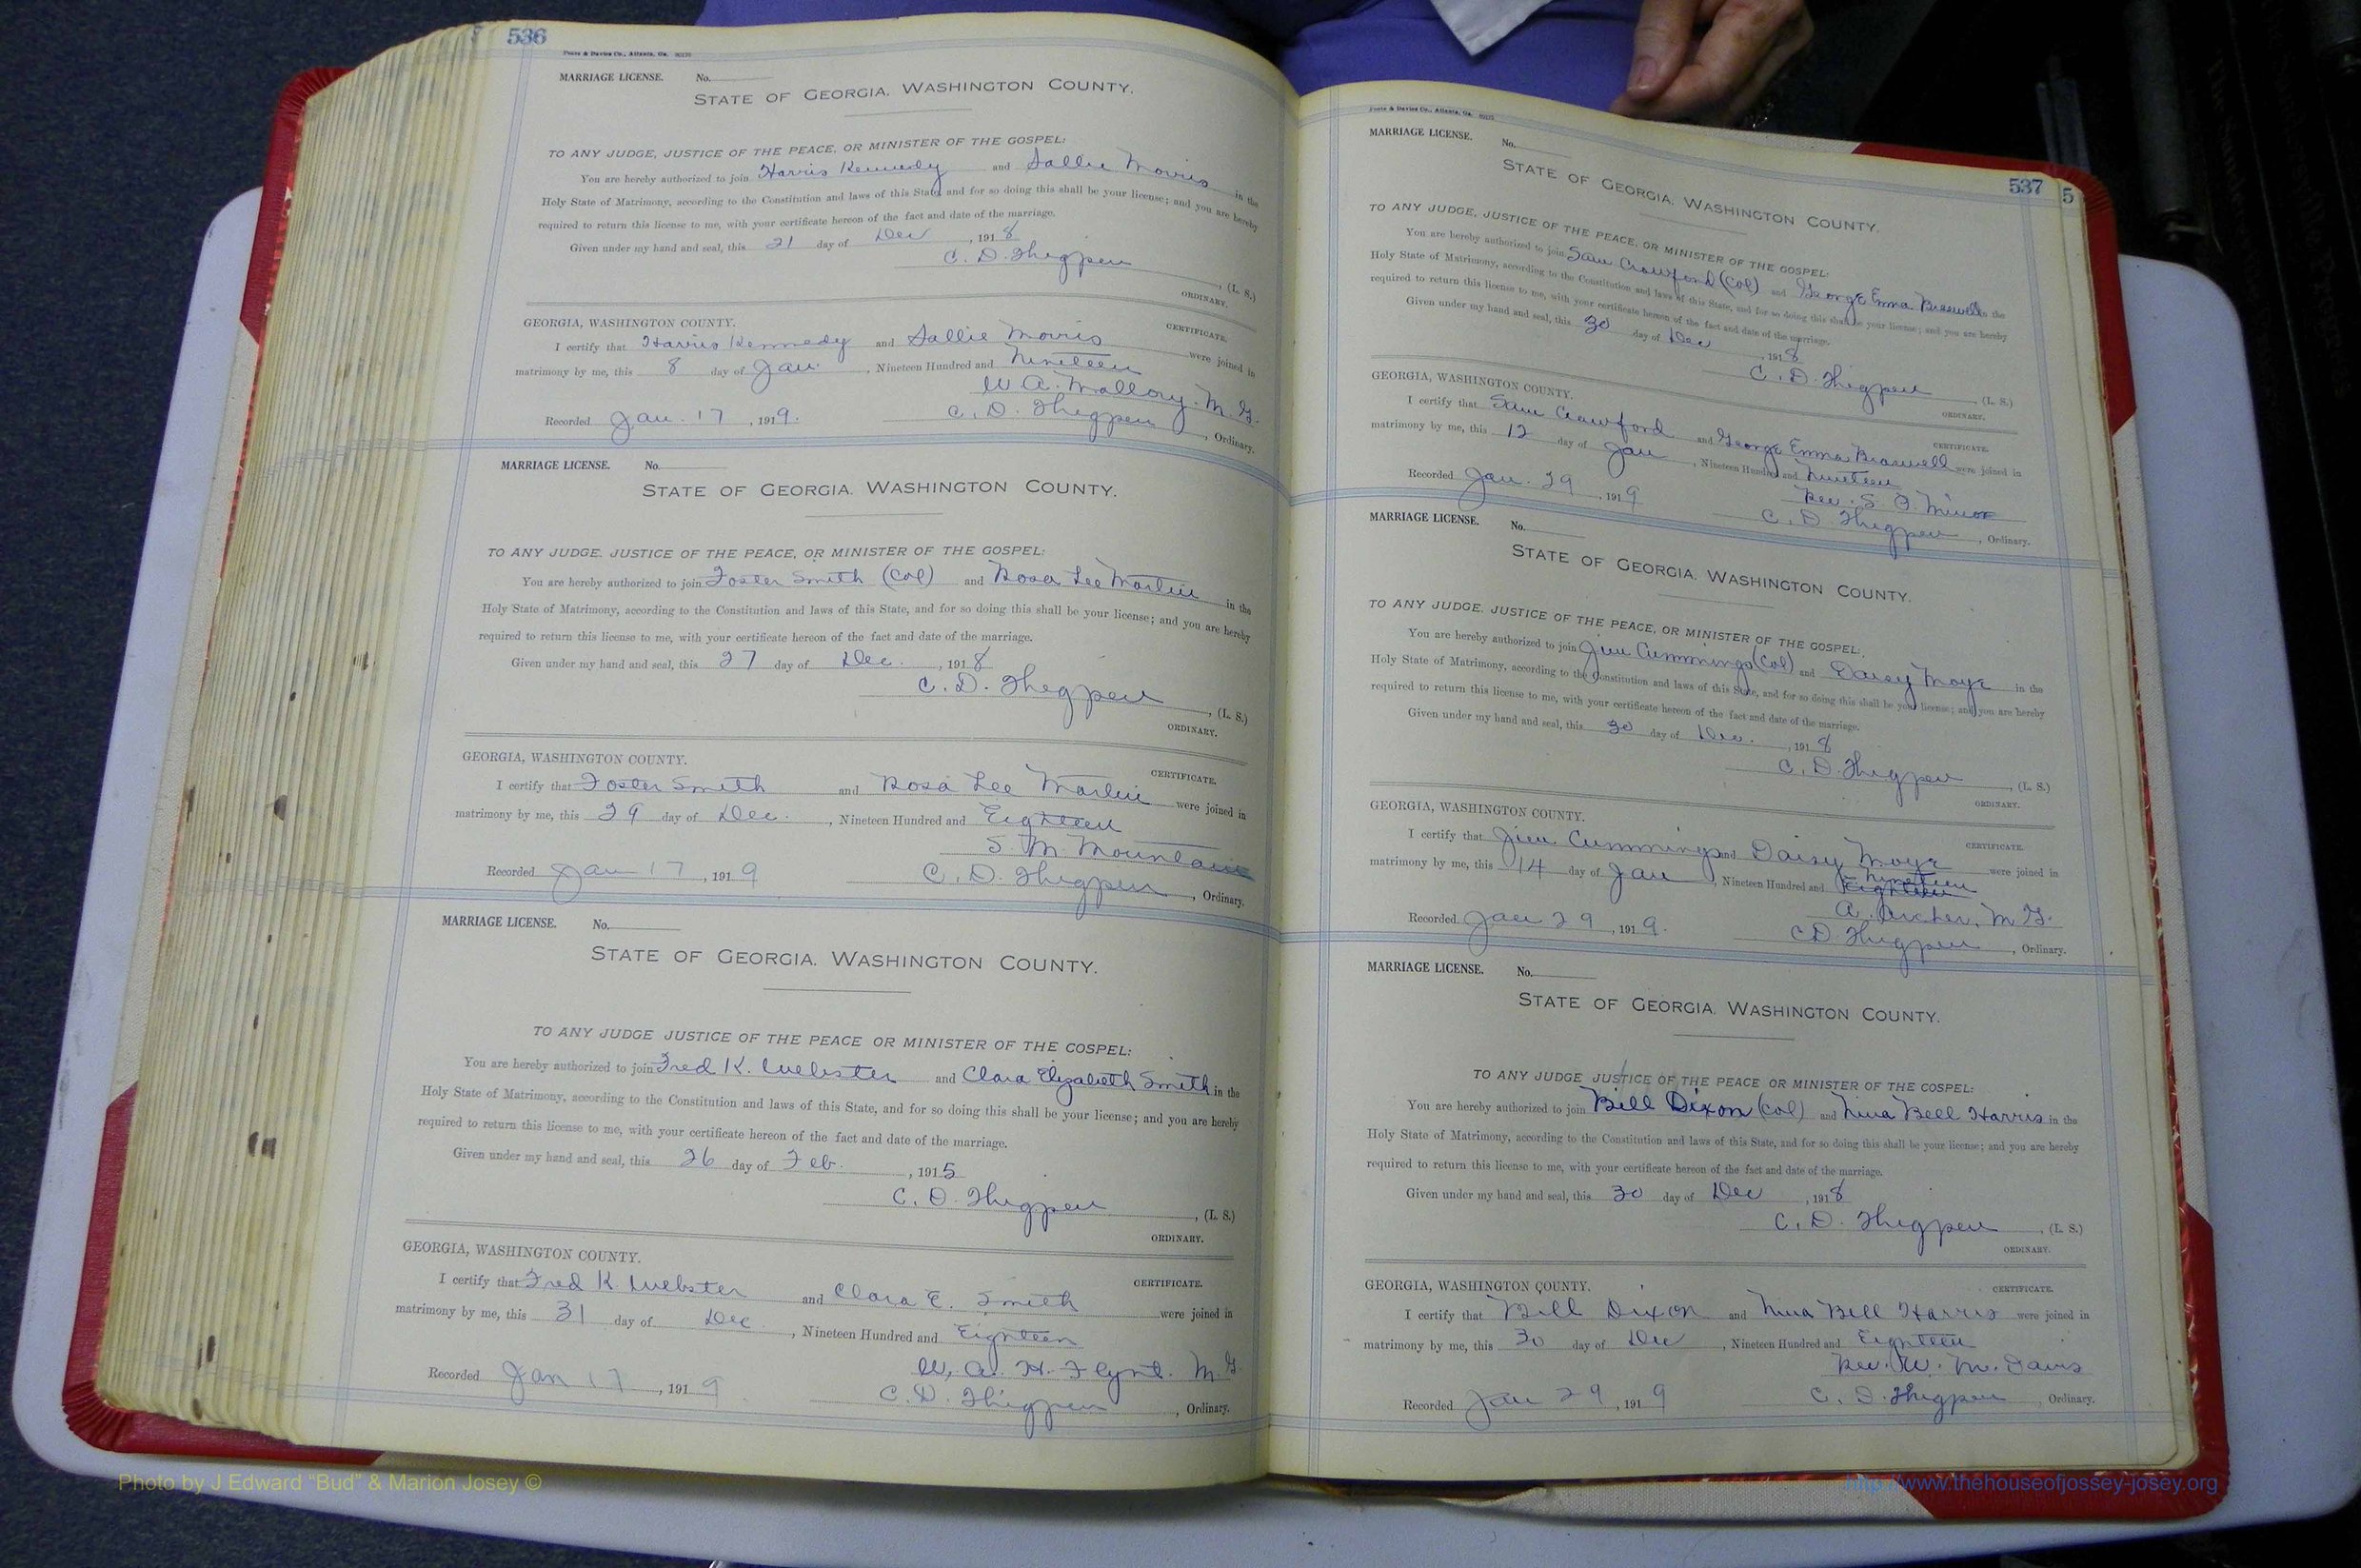 536
Foote & Davies Co., Atlanta, Ga.
MARRIAGE LICENSE. No.
STATE OF GEORGIA, WASHINGTON COUNTY.
TO ANY JUDGE, JUSTICE OF THE PEACE, OR MINISTER OF THE GOSPEL:
You are hereby authorized to join Harris Kennedy and Sallie Morris in the
Holy State of Matrimony, according to the Constitution and laws of this State, and for so doing this shall be your license; and you are hereby
required to return this license to me, with your certificate hereon of the fact and date of the marriage.
Given under my hand and seal, this 21 day of Dec, 1918
C. D. Thigpen, (L. S.)
ORDINARY.
GEORGIA, WASHINGTON COUNTY.
CERTIFICATE.
I certify that Harris Kennedy and Sallie Morris were joined in
matrimony by me, this 8 day of Jan., Nineteen Hundred and Nineteen
W. A. Mallory. M. G.
Recorded Jan. 17, 1919. C. D. Thigpen, Ordinary.
MARRIAGE LICENSE. No.
STATE OF GEORGIA. WASHINGTON COUNTY.
TO ANY JUDGE. JUSTICE OF THE PEACE, OR MINISTER OF THE GOSPEL:
You are hereby authorized to join Foster Smith (Col) and Rosa Lee Martin in the
Holy State of Matrimony, according to the Constitution and laws of this State, and for so doing this shall be your license; and you are hereby
required to return this license to me, with your certificate hereon of the fact and date of the marriage.
Given under my hand and seal, this 27 day of Dec., 1918
C. D. Thigpen, (L. S.)
ORDINARY.
GEORGIA, WASHINGTON COUNTY.
CERTIFICATE.
I certify that Foster Smith and Rosa Lee Martin were joined in
matrimony by me, this 29 day of Dec., Nineteen Hundred and Eighteen
S. M. Mountain
Recorded Jan 17, 1919 C. D. Thigpen, Ordinary.
MARRIAGE LICENSE. No.
STATE OF GEORGIA. WASHINGTON COUNTY.
TO ANY JUDGE JUSTICE OF THE PEACE OR MINISTER OF THE GOSPEL:
You are hereby authorized to join Fred K. Webster and Clara Elizabeth Smith in the
Holy State of Matrimony, according to the Constitution and laws of this State, and for so doing this shall be your license; and you are hereby
required to return this license to me, with your certificate hereon of the fact and date of the marriage.
Given under my hand and seal, this 26 day of Feb., 1915
C. D. Thigpen, (L. S.)
ORDINARY.
GEORGIA, WASHINGTON COUNTY.
CERTIFICATE.
I certify that Fred K. Webster and Clara E. Smith were joined in
matrimony by me, this 31 day of Dec, Nineteen Hundred and Eighteen
W. A. H. Flynt. M. G.
Recorded Jan 17, 1919 C. D. Thigpen, Ordinary.
Foote & Davies Co., Atlanta, Ga.
537 5
MARRIAGE LICENSE. No.
STATE OF GEORGIA. WASHINGTON COUNTY.
TO ANY JUDGE, JUSTICE OF THE PEACE, OR MINISTER OF THE GOSPEL:
You are hereby authorized to join Sam Crawford (Col) and George Emma Braswell in the
Holy State of Matrimony, according to the Constitution and laws of this State, and for so doing this shall be your license; and you are hereby
required to return this license to me, with your certificate hereon of the fact and date of the marriage.
Given under my hand and seal, this 30 day of Dec, 1918
C. D. Thigpen, (L. S.)
ORDINARY.
GEORGIA, WASHINGTON COUNTY.
CERTIFICATE.
I certify that Sam Crawford and George Emma Braswell were joined in
matrimony by me, this 12 day of Jan, Nineteen Hundred and Nineteen
Rev. S. J. Minor
Recorded Jan. 29, 1919 C. D. Thigpen, Ordinary.
MARRIAGE LICENSE. No.
STATE OF GEORGIA, WASHINGTON COUNTY.
TO ANY JUDGE. JUSTICE OF THE PEACE, OR MINISTER OF THE GOSPEL:
You are hereby authorized to join Jim Cummings (Col) and Daisy Moye in the
Holy State of Matrimony, according to the Constitution and laws of this State, and for so doing this shall be your license; and you are hereby
required to return this license to me, with your certificate hereon of the fact and date of the marriage.
Given under my hand and seal, this 30 day of Dec., 1918
C. D. Thigpen, (L. S.)
ORDINARY.
GEORGIA, WASHINGTON COUNTY.
CERTIFICATE.
I certify that Jim Cummings and Daisy Moye were joined in
matrimony by me, this 14 day of Jan, Nineteen Hundred and Eighteen Nineteen
A. Archer, M. G.
Recorded Jan 29, 1919. C. D. Thigpen, Ordinary.
MARRIAGE LICENSE. No.
STATE OF GEORGIA. WASHINGTON COUNTY.
TO ANY JUDGE JUSTICE OF THE PEACE OR MINISTER OF THE GOSPEL:
You are hereby authorized to join Bill Dixon (Col) and Nina Bell Harris in the
Holy State of Matrimony, according to the Constitution and laws of this State, and for so doing this shall be your license; and you are hereby
required to return this license to me, with your certificate hereon of the fact and date of the marriage.
Given under my hand and seal, this 30 day of Dec, 1918
C. D. Thigpen, (L. S.)
ORDINARY.
GEORGIA, WASHINGTON COUNTY.
CERTIFICATE.
I certify that Bill Dixon and Nina Bell Harris were joined in
matrimony by me, this 30 day of Dec, Nineteen Hundred and Eighteen
Rev. W. M. Davis
Recorded Jan 29, 1919 C. D. Thigpen Ordinary.
Photo by J Edward “Bud” & Marion Josey ©
http://www.thehouseofjossey-josey.org